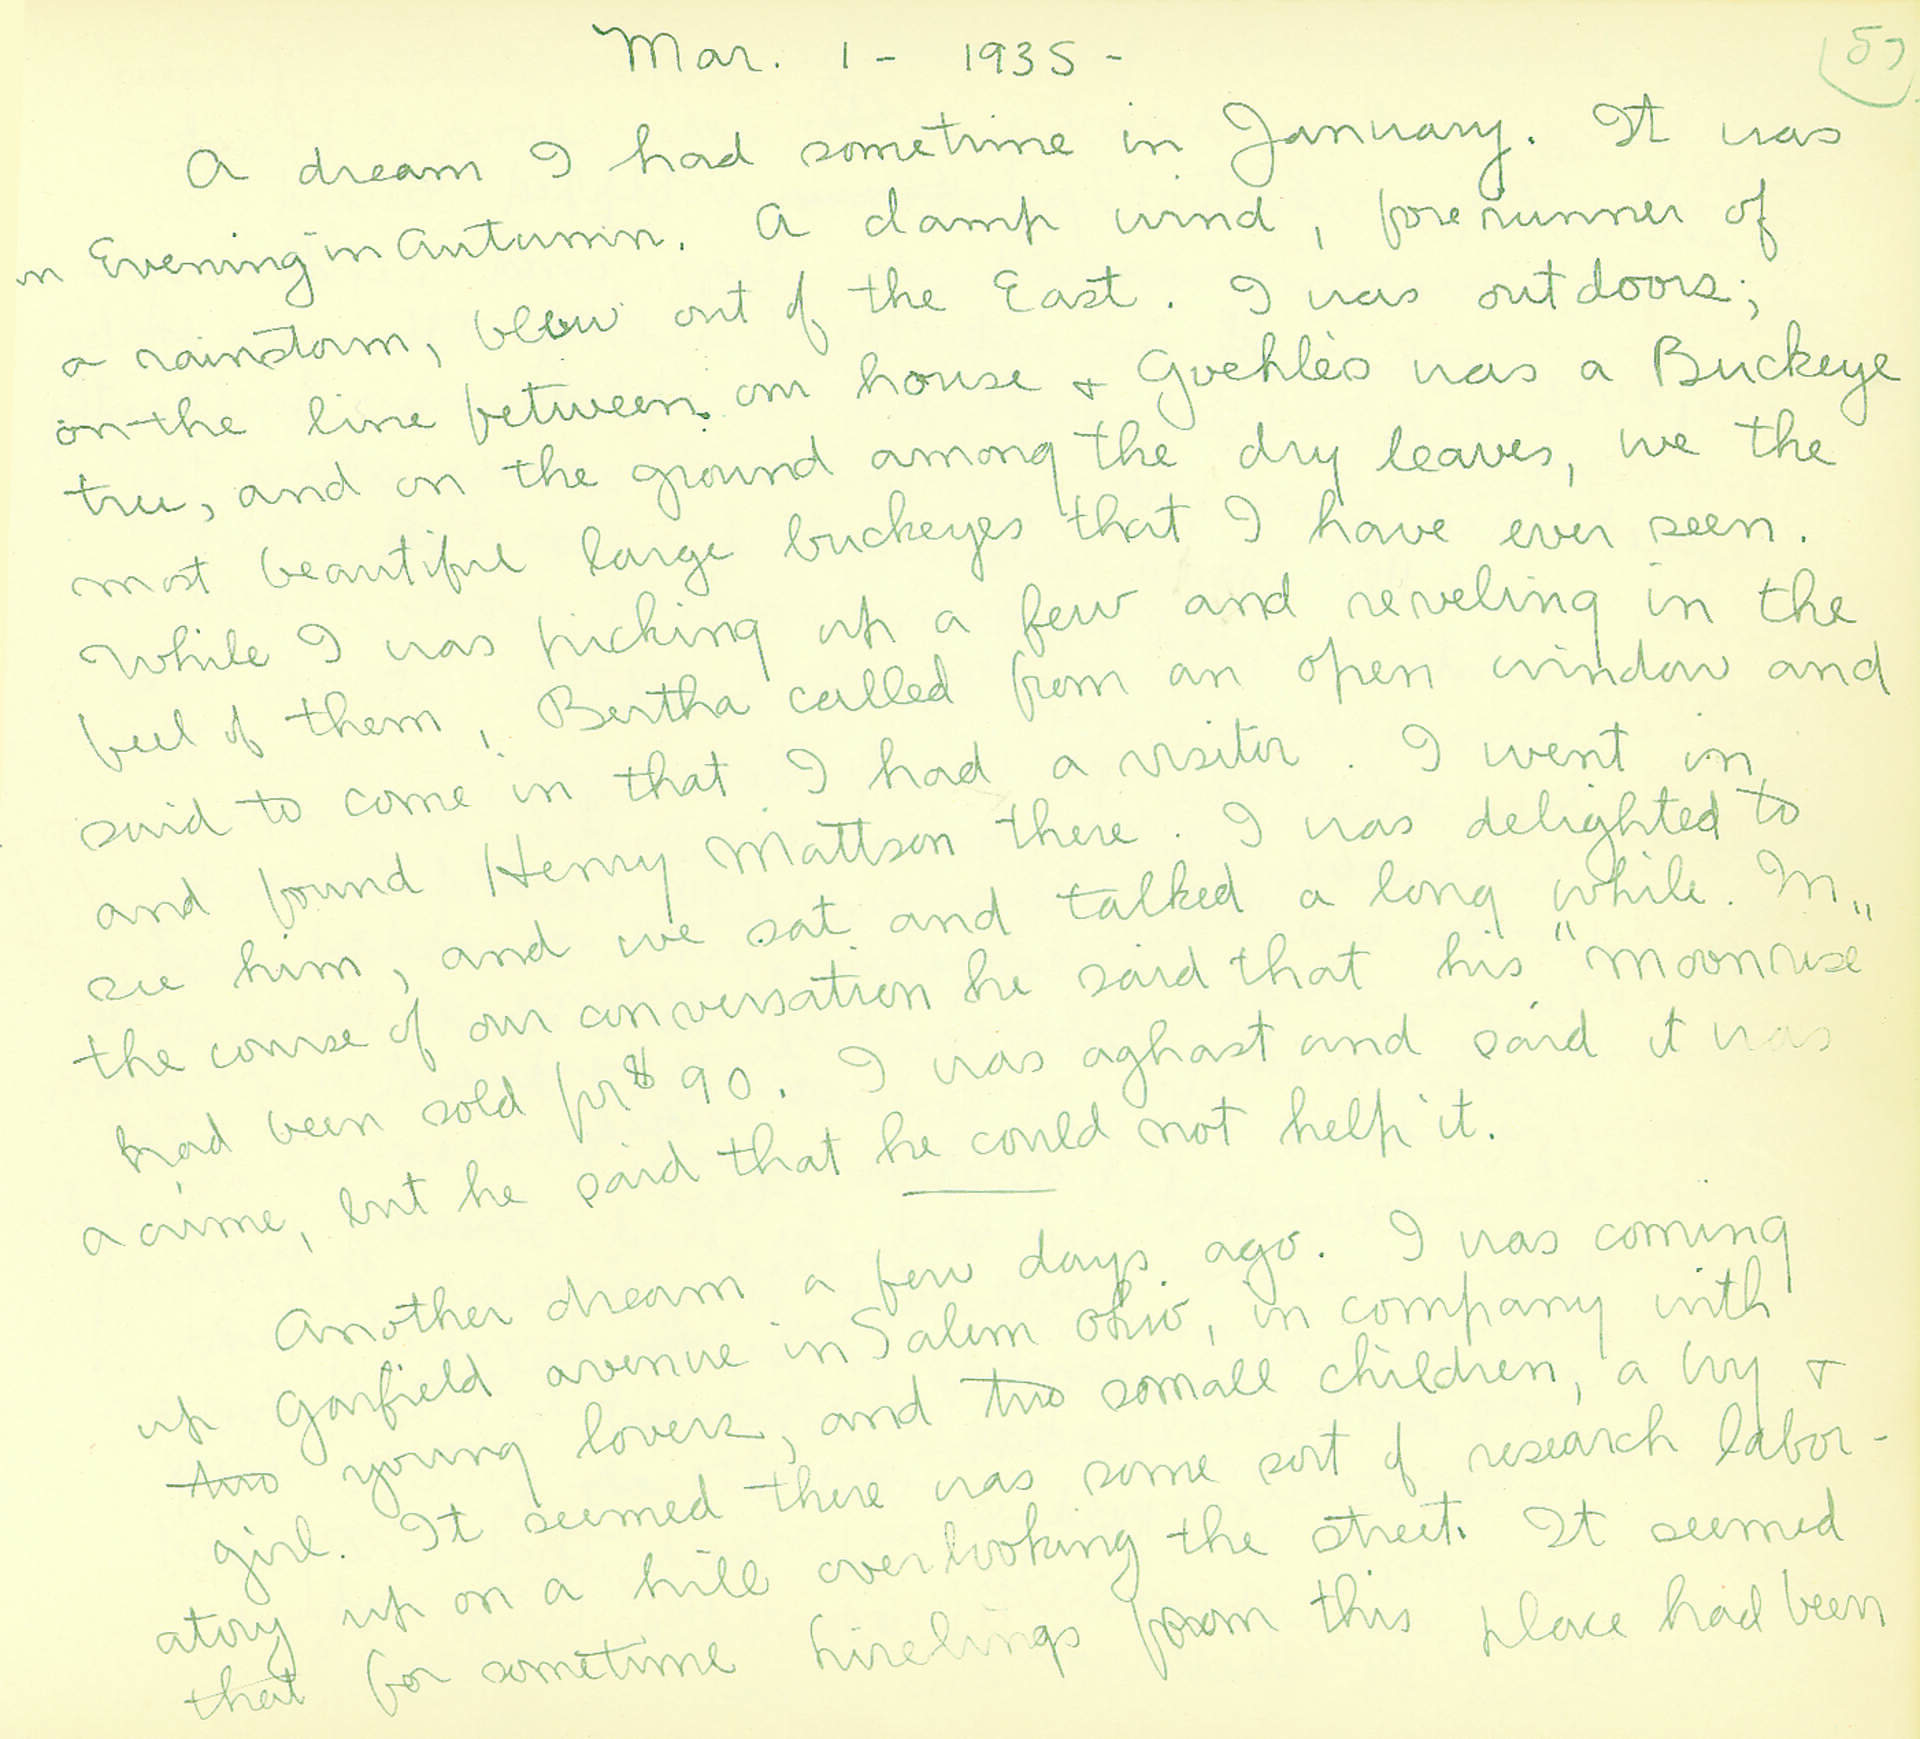 Mar. 1 - 1935 -
A dream I had sometime in January. It was
an Evening in Autumn. A damp wind, forerunner of
a rainstorm, blew out of the East. I was outdoors;
on the line between our house + Goehle's was a Buckeye
tree, and on the ground among the dry leaves, we the
most beautiful large buckeyes that I have ever seen.
While I was picking up a few and reveling in the
feel of them, Bertha called from an open window and
said to come in that I had a visitor. I went in
and found Henry Mattson there. I was delighted to
see him, and we sat and talked a long while. In
the course of our conversation he said that his "Moonrise"
had been sold for $90. I was aghast and said it was
a crime, but he said that he could not help it.
Another dream a few days ago. I was coming
up Garfield avenue in Salem Ohio, in company with
two young lovers, and two small children, a boy +
girl. It seemed there was some sort of research labor-
atory up on a hill overlooking the street. It seemed
that for sometime hirelings from this place had been